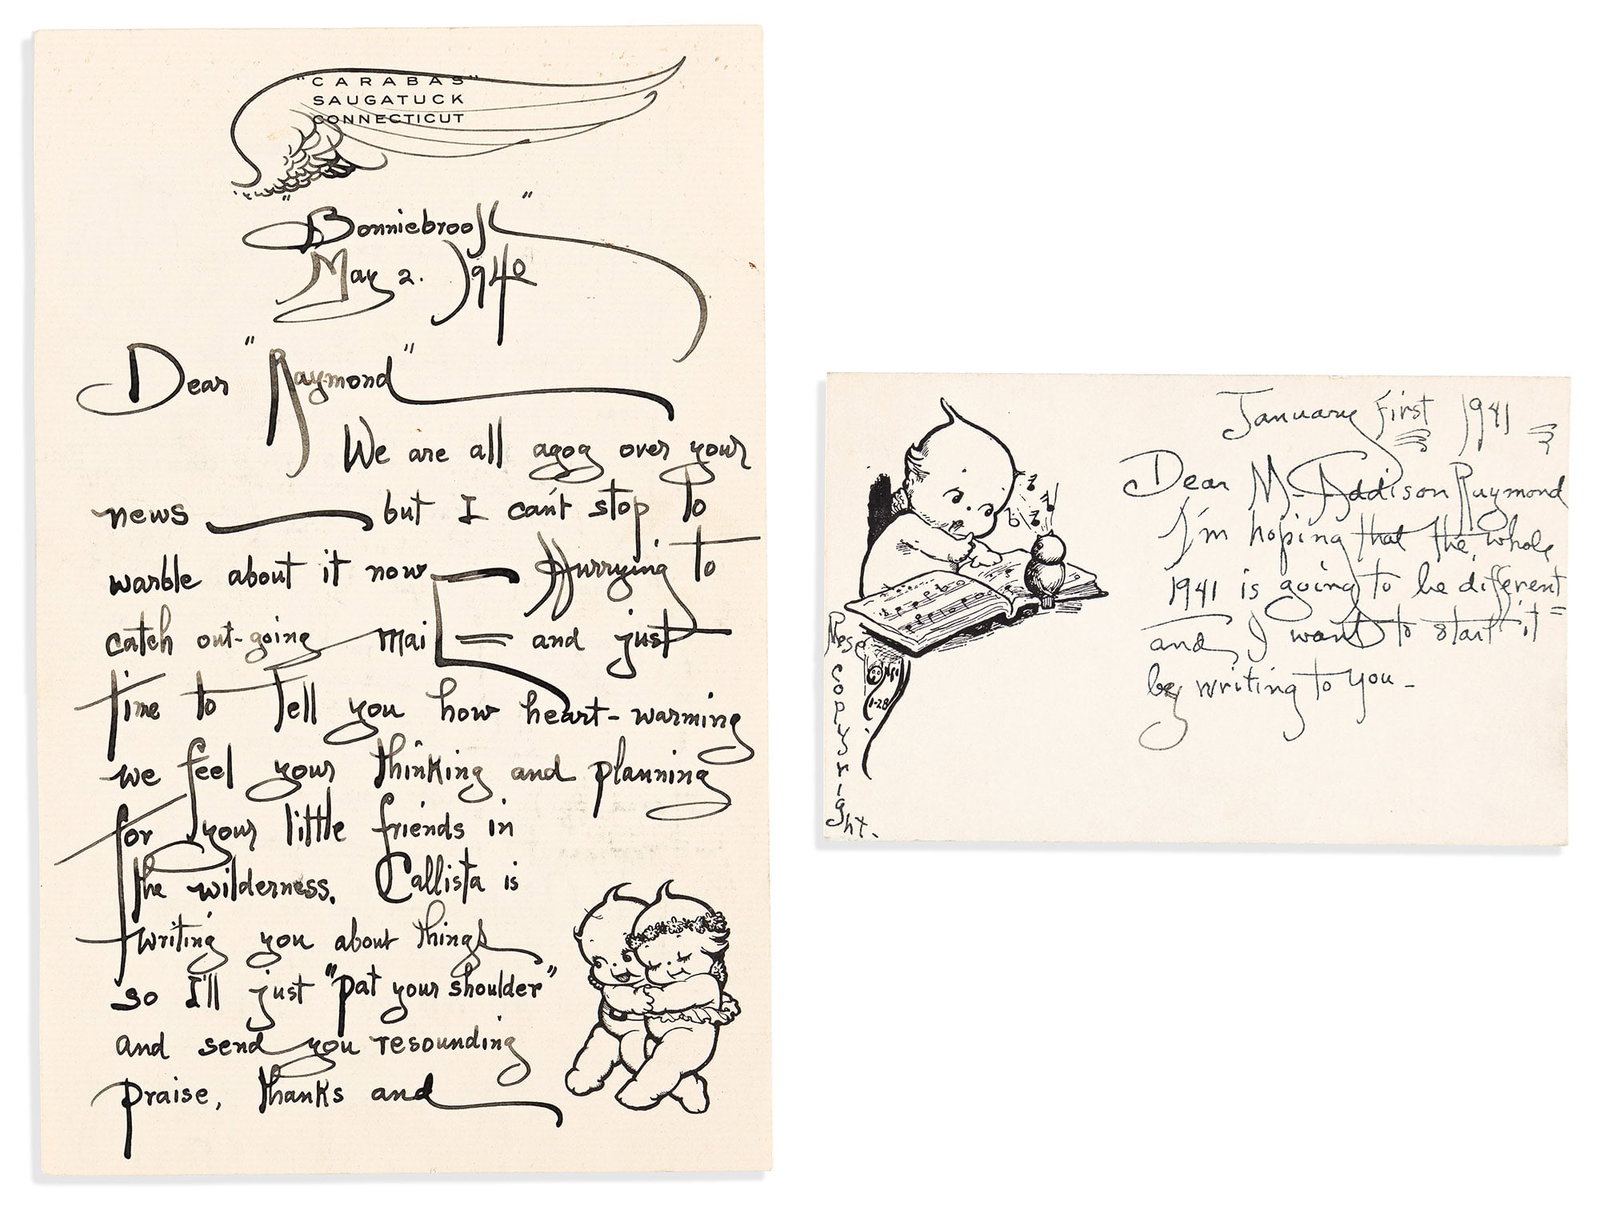 "CARABAS"
SAUGATUCK
CONNECTICUT
"Bonniebrook"
May 2. 1940
Dear "Raymond"
We are all agog over your
news — but I can't stop to
warble about it now — Hurrying to
catch out-going mail = and just
time to tell you how heart-warming
we feel your thinking and planning
for your little friends in
the wilderness. Callista is
writing you about things
so I'll just "pat your shoulder"
and send you resounding
praise, thanks and
January First 1941
Dear M. Addison Raymond
I'm hoping that the whole
1941 is going to be different
and I want to start it
by writing to you -
Rose
O'Neill
1-28
copyright.